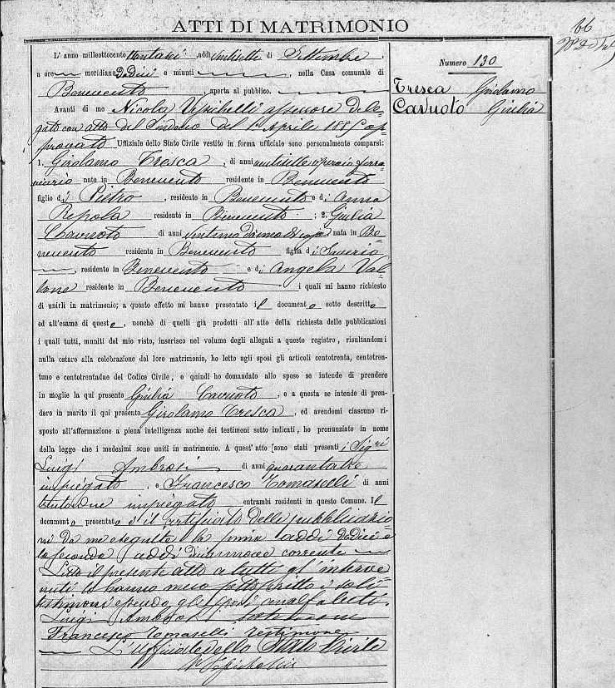 ATTI DI MATRIMONIO
66
L'anno millottocento ottantasei addì ventisette di Settembre
a ore meridiane dodici e minuti, nella Casa comunale di
Benevento, aperta al pubblico.
Avanti di me Nicola assessore dele-
gato con atto del Sindaco del 1° Aprile 1885 ap-
provato Uffiziale dello Stato Civile vestito in forma uffiziale sono personalmente comparsi:
1. Girolamo Tresca, di anni ventisette operaio ferro-
viario nato in Benevento residente in Benevento
figlio di Pietro, residente in Benevento e di Anna
Repola residente in Benevento; 2. Giulia
Cavuoto di anni nata in Be-
nevento residente in Benevento figlia di Saverio
, residente in Benevento e di Angela Val-
lone residente in Benevento i quali mi hanno richiesto
di unirli in matrimonio; a questo effetto mi hanno presentato il documento sotto descritto
ed all'esame di questo, nonchè di quelli già prodotti all'atto della richiesta delle pubblicazioni
i quali tutti, muniti del mio visto, inserisco nel volume degli allegati a questo registro, risultandomi
nulla ostare alla celebrazione del loro matrimonio, ho letto agli sposi gli articoli centotrenta, centotren-
tuno e centotrentadue del Codice Civile, e quindi ho domandato allo sposo se intende di prendere
in moglie la qui presente Giulia Cavuoto, e a questa se intende di pren-
dere in marito il qui presente Girolamo Tresca, ed avendomi ciascuno ri-
sposto affermativamente a piena intelligenza anche dei testimoni sotto indicati, ho pronunziato in nome
della legge che i medesimi sono uniti in matrimonio. A quest'atto sono stati presenti i Sigri
Luigi Ambrosi di anni quarantatre
impiegato, e Francesco Tomaselli di anni
trentadue impiegato entrambi residenti in questo Comune. Il
documento presentato è il certificato delle pubblicazio-
ni da me eseguite la prima addì dodici e
la seconda addì diciannove corrente
Letto il presente atto a tutti gl'interve-
nuti lo hanno meco sottoscritto i soli
testimoni essendo gli sposi analfabeti.
Luigi Ambrosi testimone
Francesco Tomaselli testimone
L'Ufficiale dello Stato Civile
Numero 130
Tresca Girolamo
Cavuoto Giulia